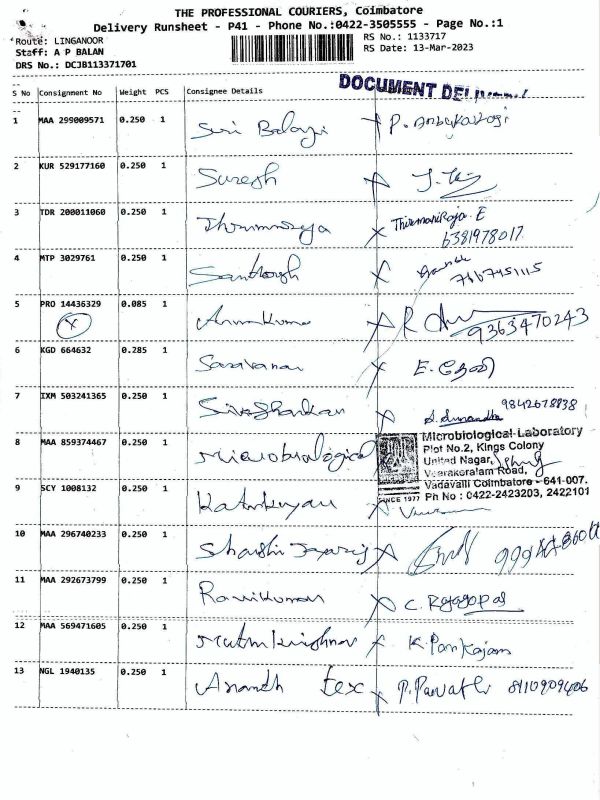 THE PROFESSIONAL COURIERS, Coimbatore
Delivery Runsheet - P41 - Phone No.:0422-3505555 - Page No.:1
Route: LINGANOOR
RS No.: 1133717
Staff: A P BALAN
RS Date: 13-Mar-2023
DRS No.: DCJB113371701
DOCUMENT
S No Consignment No Weight PCS Consignee Details
1 MAA 299009571 0.250 1 Suri Balaji P.
2 KUR 529177160 0.250 1 Suresh
3 TDR 200011060 0.250 1 ThirumalRaja.E
6381978017
4 MTP 3029761 0.250 1 Santhosh
5 PRO 14436329 0.085 1 Arunkumar R
9363470243
6 KGD 664632 0.285 1 Saravanan E.
7 IXM 503241365 0.250 1 Sivashankar
8 MAA 859374467 0.250 1 Microbiological
Microbiological Laboratory
Plot No.2, Kings Colony
United Nagar,
Veerakeralam Road,
Vadavalli Coimbatore - 641-007.
Ph No : 0422-2423203, 2422101
SINCE 1977
9 SCY 1008132 0.250 1
10 MAA 296740233 0.250 1
11 MAA 292673799 0.250 1 Ravikumar C. Rajagopal
12 MAA 569471605 0.250 1 Muthukrishnan K. Pankajam
13 NGL 1940135 0.250 1 Anandh tex P. Parvathi